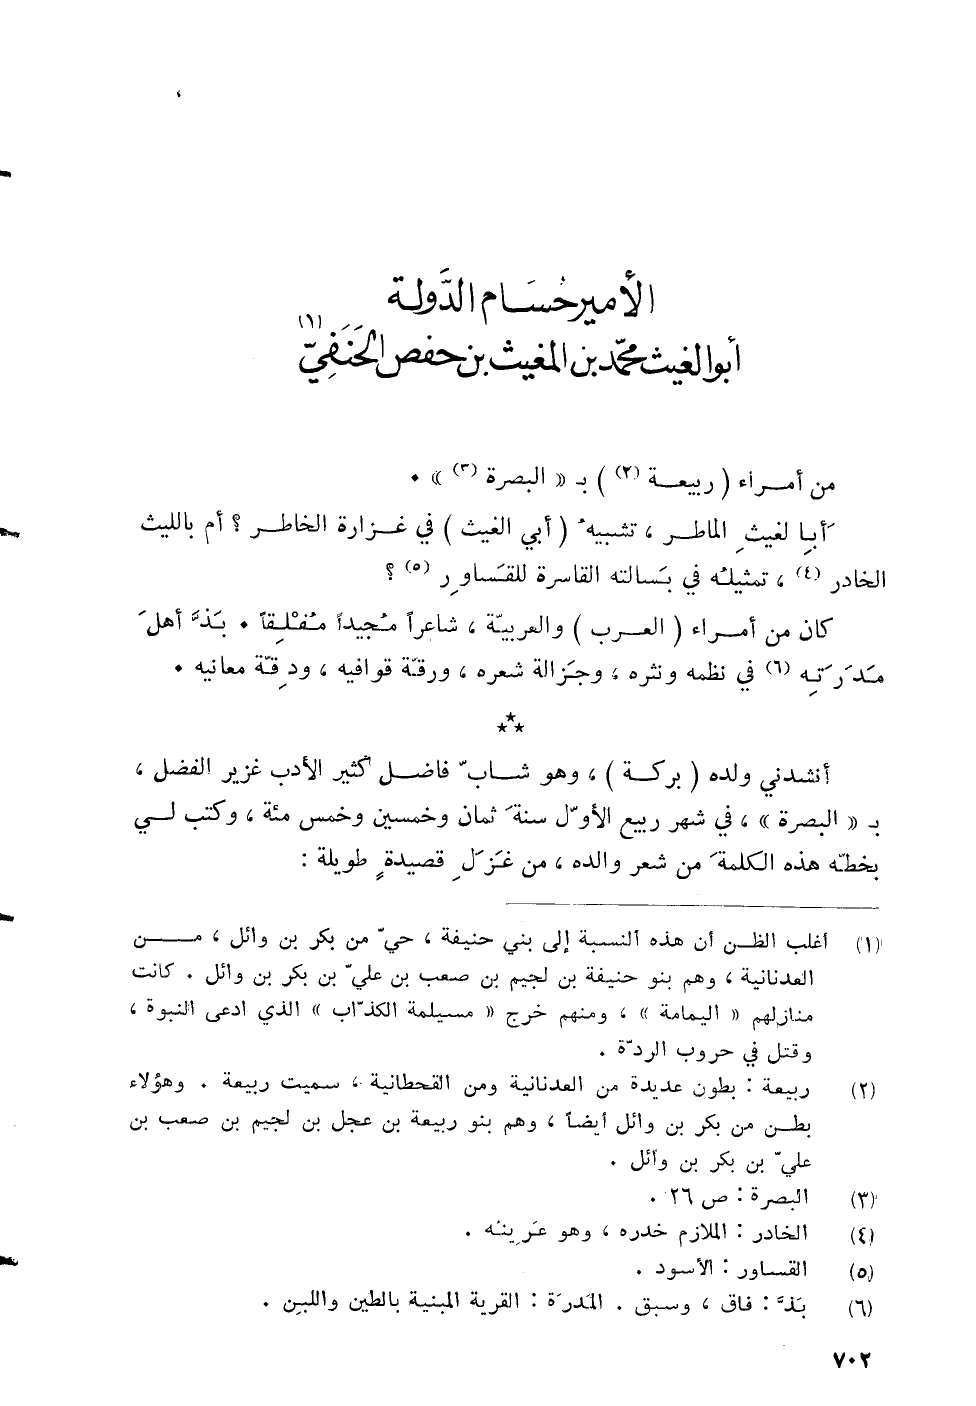 الأمير حُسَام الدَّولة
أبو الغيث محمّد بن المغيث بن حفص الحَنَفِيّ (١)
من أمراء ( ربيعة (٢) ) بـ « البصرة (٣) » ٠
أبِالغيثِ الماطر ، تشبيهُ ( أبي الغيث ) في غزارة الخاطر ؟ أم بالليث
الخادر (٤) ، تمثيلُه في بَسالته القاسرة للقَساوِر (٥) ؟
كان من أمراء ( العرب ) والعربيّة ، شاعراً مُجيداً مُفْلِقاً ٠ بَذَّ أهلَ
مَدَرَتِه (٦) في نظمه ونثره ، وجَزالة شعره ، ورقّة قوافيه ، ودِقّة معانيه ٠
***
أنشدني ولده ( بركة ) ، وهو شابّ فاضل كثير الأدب غزير الفضل ،
بـ « البصرة » ، في شهر ربيع الأوّل سنةَ ثمان وخمسين وخمس مئة ، وكتب لي
بخطّه هذه الكلمةَ من شعر والده ، من غَزَلِ قصيدةٍ طويلة :
(١) أغلب الظن أن هذه النسبة إلى بني حنيفة ، حيّ من بكر بن وائل ، من
العدنانية ، وهم بنو حنيفة بن لجيم بن صعب بن عليّ بن بكر بن وائل . كانت
منازلهم « اليمامة » ، ومنهم خرج « مسيلمة الكذّاب » الذي ادعى النبوة ،
وقتل في حروب الردّة .
(٢) ربيعة : بطون عديدة من العدنانية ومن القحطانية ، سميت ربيعة . وهؤلاء
بطن من بكر بن وائل أيضاً ، وهم بنو ربيعة بن عجل بن لجيم بن صعب بن
عليّ بن بكر بن وائل .
(٣) البصرة : ص ٢٦ .
(٤) الخادر : الملازم خدره ، وهو عَرِينُه .
(٥) القساور : الأسود .
(٦) بَذَّ : فاق ، وسبق . المَدرَة : القرية المبنية بالطين واللبن .
٧٠٢